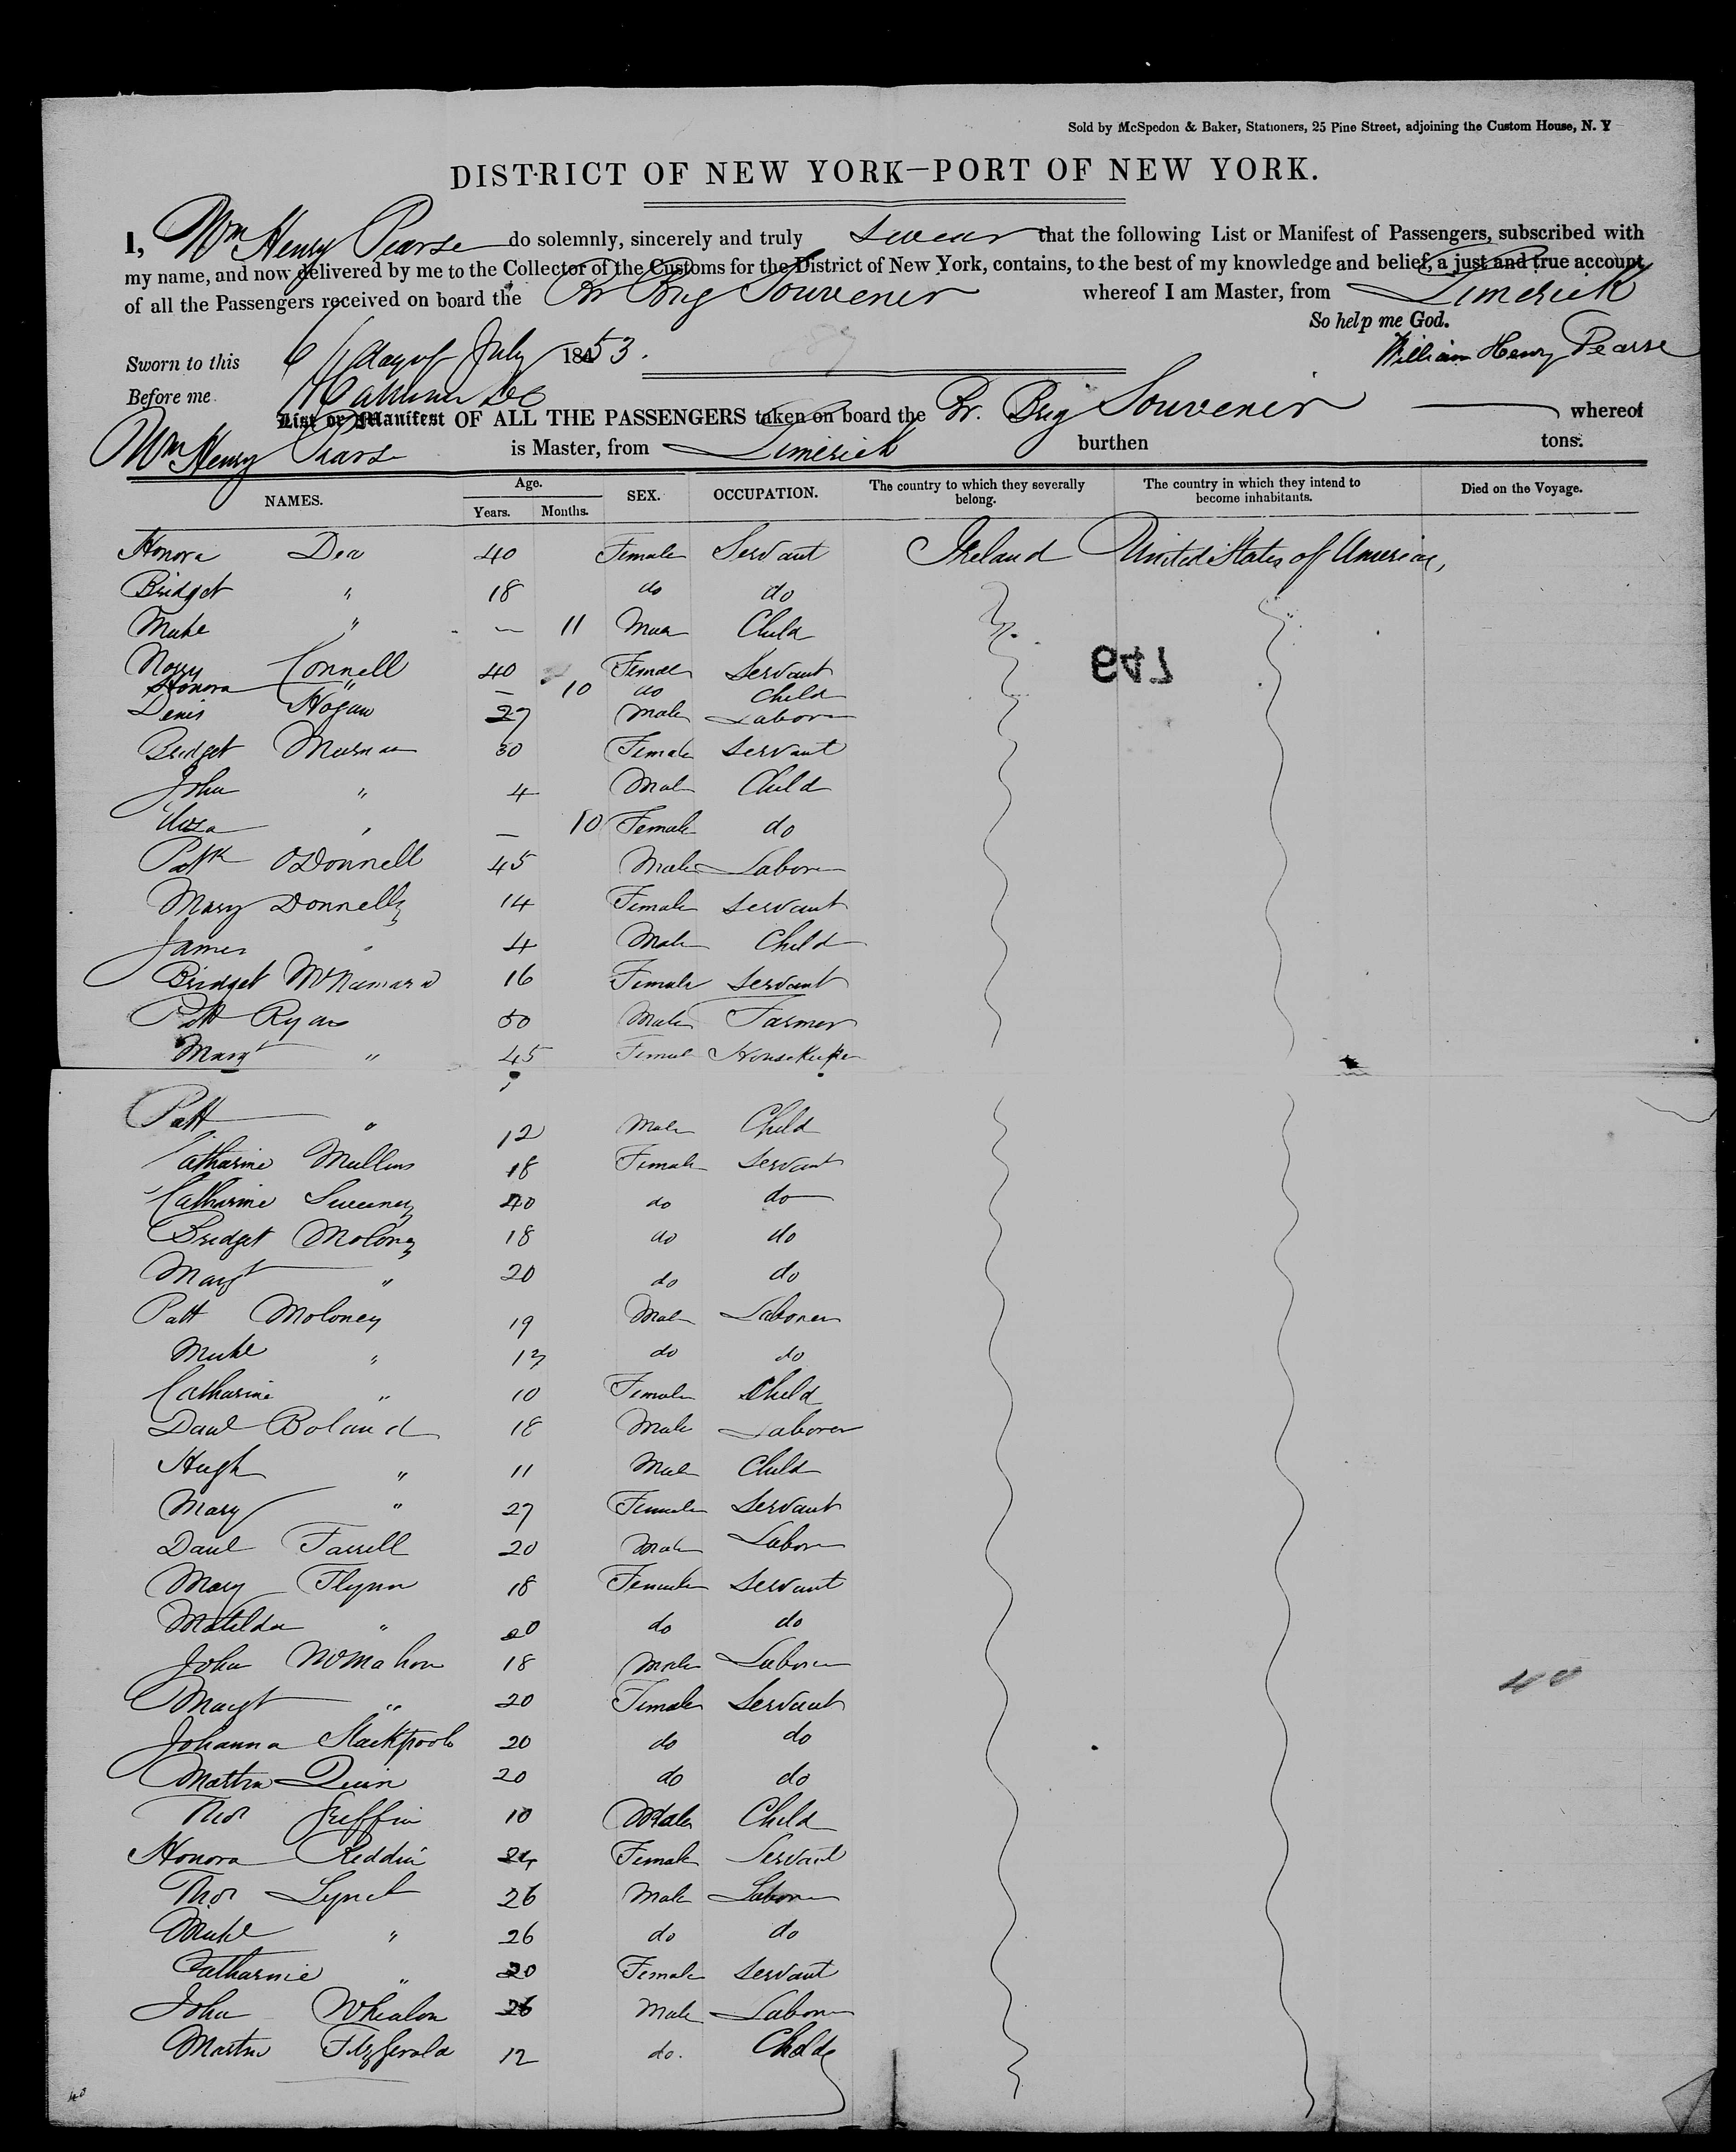 Sold by McSpedon & Baker, Stationers, 25 Pine Street, adjoining the Custom House, N. Y
DISTRICT OF NEW YORK—PORT OF NEW YORK.
I, Wm Henry Pearse do solemnly, sincerely and truly swear that the following List or Manifest of Passengers, subscribed with
my name, and now delivered by me to the Collector of the Customs for the District of New York, contains, to the best of my knowledge and belief, a just and true account
of all the Passengers received on board the Br Brig Souvenir whereof I am Master, from Limerick
So help me God.
Sworn to this 6 day of July 1853. William Henry Pearse
Before me
List or Manifest OF ALL THE PASSENGERS taken on board the Br. Brig Souvenir whereof
Wm Henry Pearse is Master, from Limerick burthen tons.
NAMES. Age. Years. Months. SEX. OCCUPATION. The country to which they severally belong. The country in which they intend to become inhabitants. Died on the Voyage.
Honora Dea 40 Female Servant Ireland United States of America,
Bridget " 18 do do
Michl " — 11 Male Child
947
Connell 40 Female Servant
Honora " — 10 do Child
Denis Hogan 27 Male Laborer
Bridget 30 Female Servant
John " 4 Male Child
Eliza " — 10 Female do
Patk O'Donnell 45 Male Laborer
Mary Donnelly 14 Female Servant
James " 4 Male Child
Bridget McNamara 16 Female Servant
Patt Ryan 50 Male Farmer
Margt " 45 Female Housekeeper
Patt " 12 Male Child
Catharine Mullins 18 Female Servant
Catharine Sweeney 40 do do
Bridget Moloney 18 do do
Margt " 20 do do
Patt Moloney 19 Male Laborer
Michl " 13 do do
Catharine " 10 Female Child
Danl Boland 18 Male Laborer
Hugh " 11 Male Child
Mary " 27 Female Servant
Danl Farrell 20 Male Laborer
Mary Flynn 18 Female Servant
Matilda " 20 do do
John McMahon 18 Male Laborer
40
Margt " 20 Female Servant
Johanna Stackpool 20 do do
Martha Quin 20 do do
Thos Griffin 10 Male Child
Honora Reddin Female Servant
Thos Lynch 26 Male Laborer
Michl " 26 do do
Catharine " 20 Female Servant
John Whealon 26 Male Laborer
Martin FitzGerald 12 do. Child
40